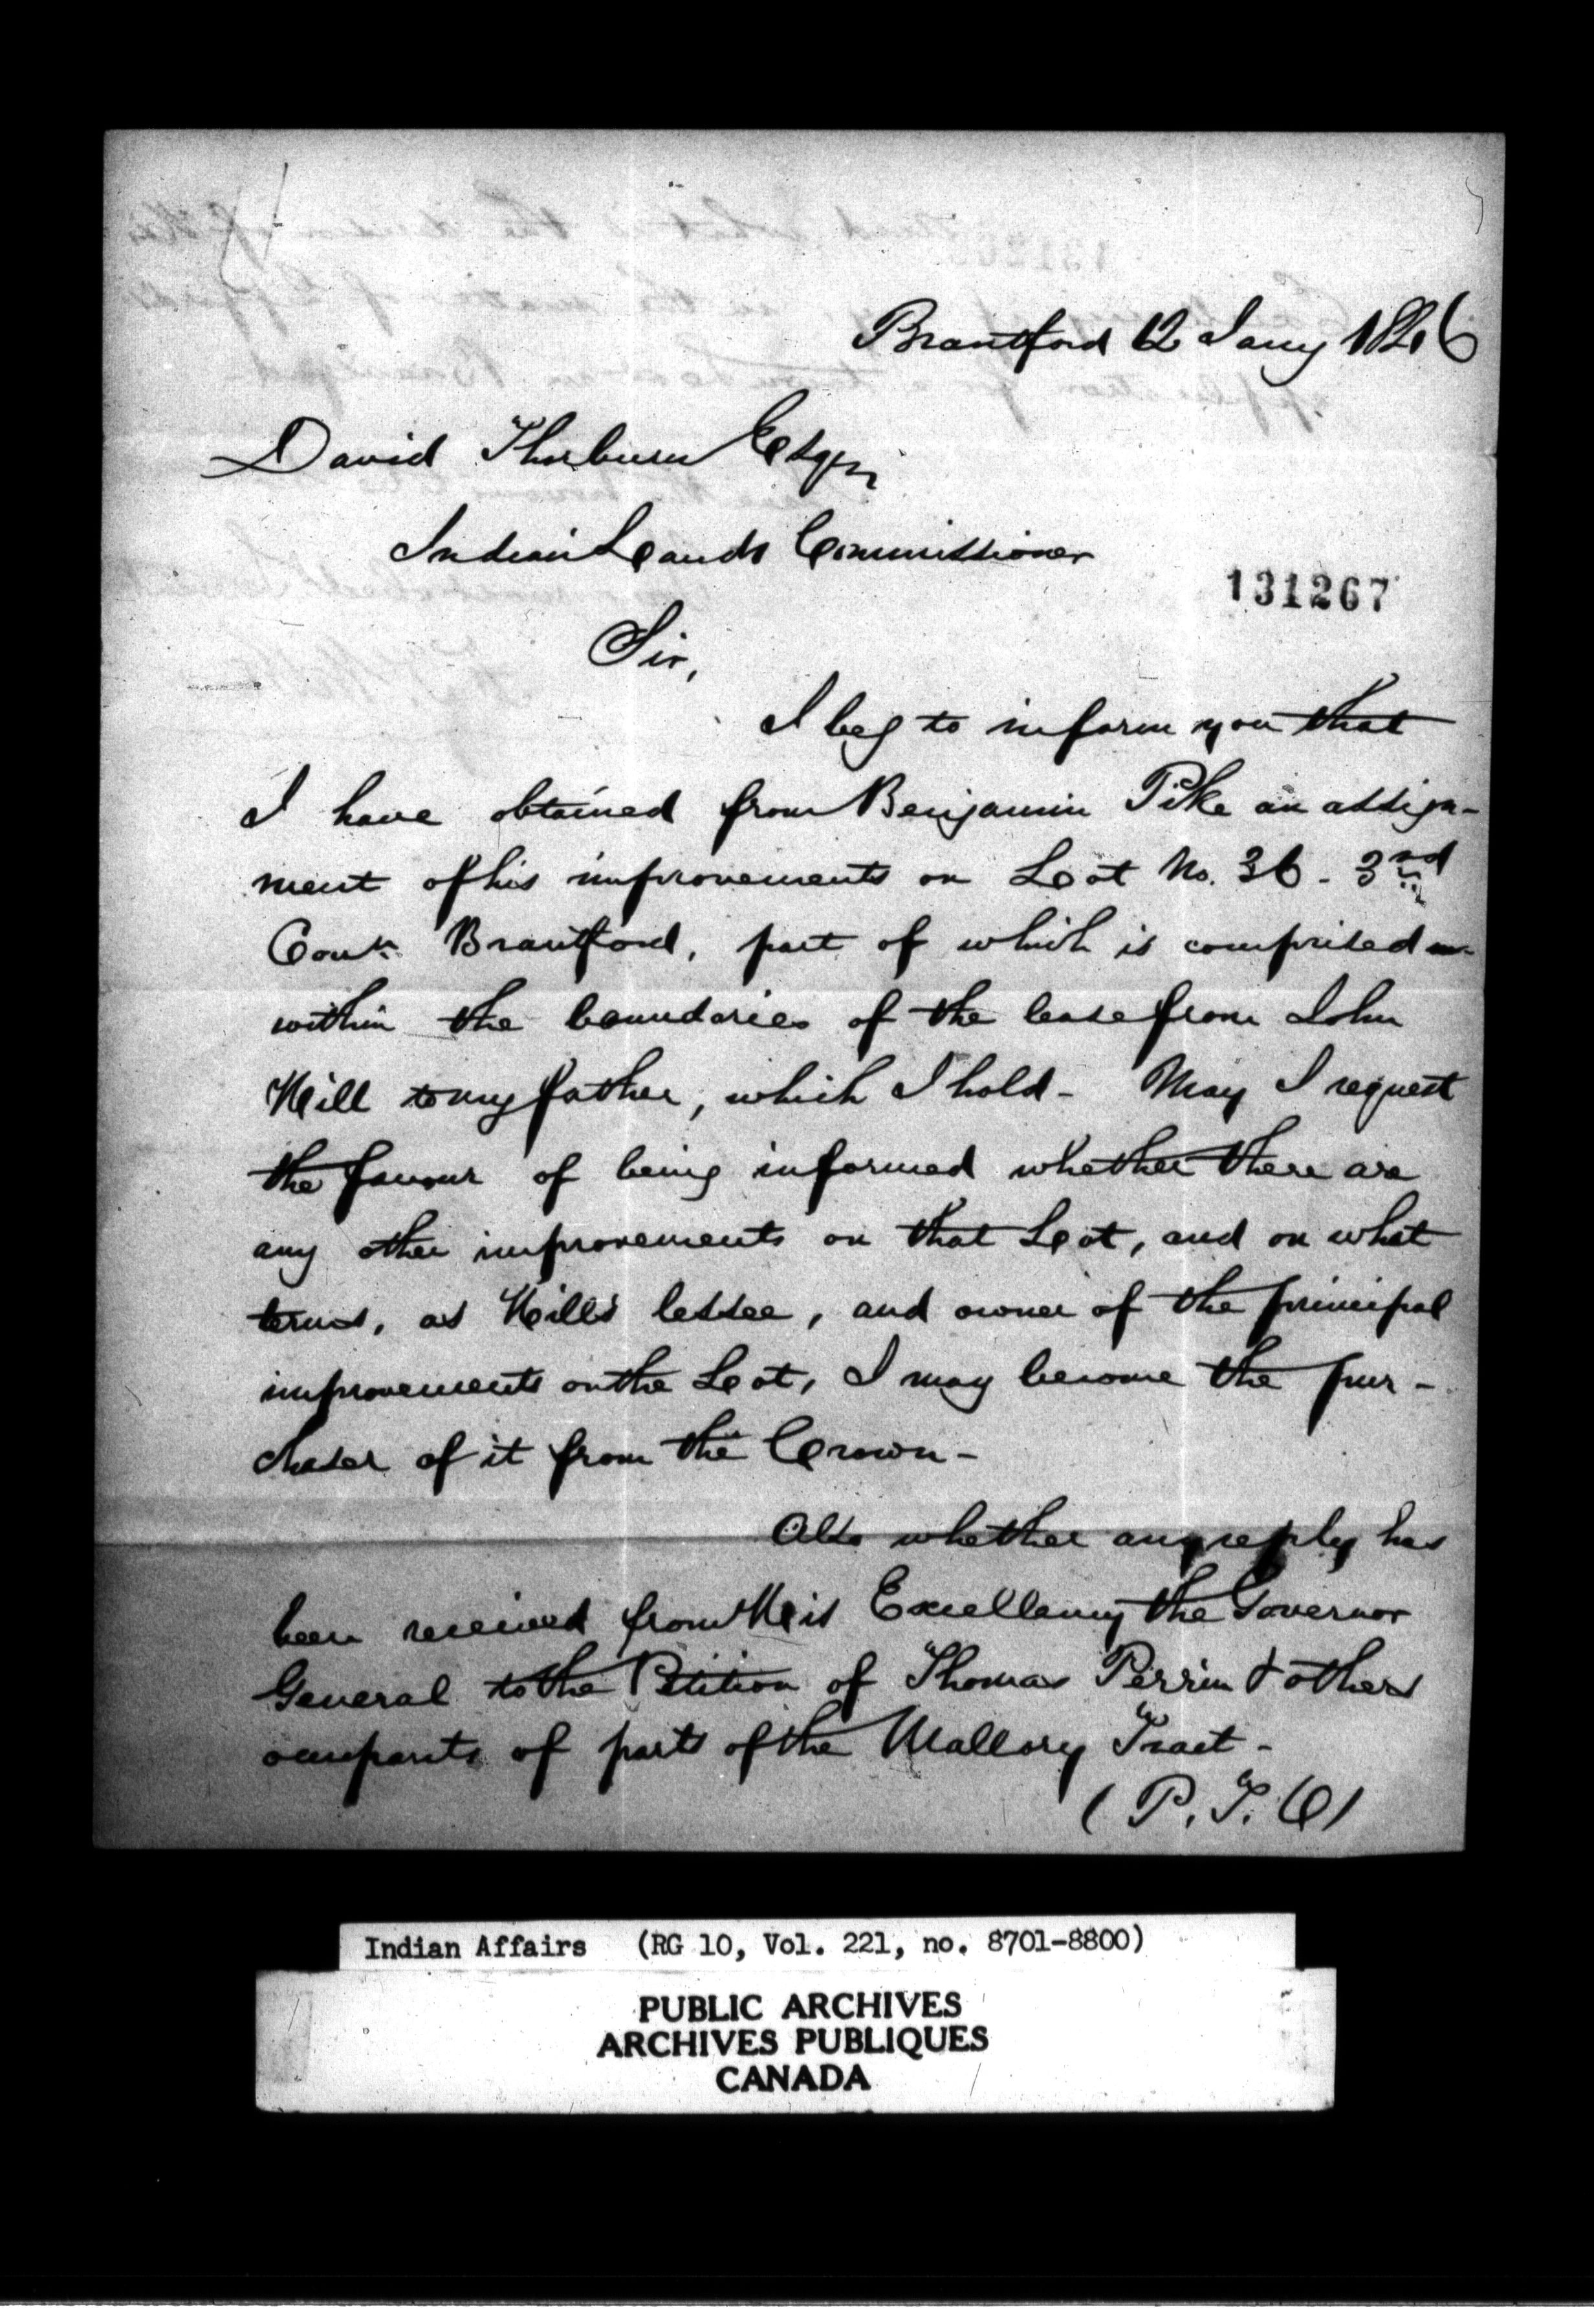 Brantford 12 Jany 1846
David Thorburn Esqr,
Indian Lands Commissioner
131267
Sir,
I beg to inform you that
I have obtained from Benjamin Pike an assign-
ment of his improvements on Lot No. 36 - 3rd
Con. Brantford, part of which is comprised
within the boundaries of the lease from John
Hill to my father, which I hold - May I request
the favour of being informed whether there are
any other improvements on that Lot, and on what
terms, as Hill's lessee, and owner of the principal
improvements on the Lot, I may become the pur-
chaser of it from the Crown -
Also whether any reply has
been received from His Excellency the Governor
General to the Petition of Thomas Perrin & others
occupants of parts of the Mallory Tract -
(P. T. O)
Indian Affairs (RG 10, Vol. 221, no. 8701-8800)
PUBLIC ARCHIVES
ARCHIVES PUBLIQUES
CANADA